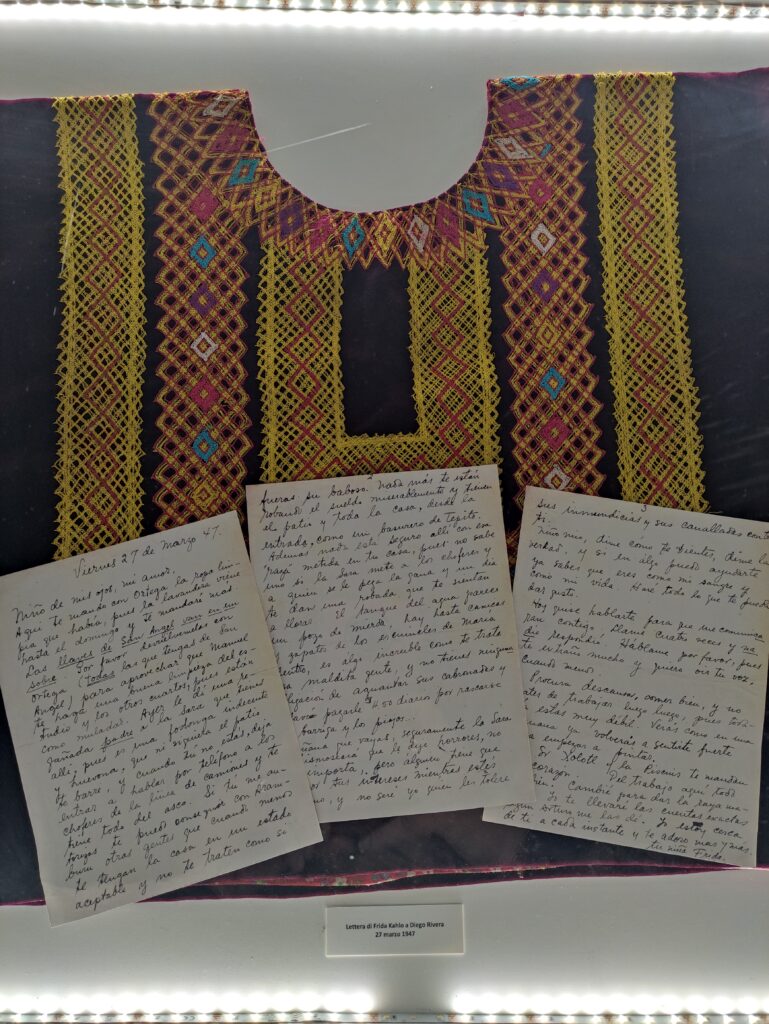 Viernes 27 de Marzo 47.
Niño de mis ojos, mi amor,
Aquí te mando con Ortega la ropa lim-
pia que había, pues la lavandera viene
hasta el domingo y te mandaré más.
Las llaves de San Angel van en un
sobre. Por favor, devuélvemelas con
Ortega (todas las que tengas de San
Angel) para aprovechar que Manuel
te haga una buena limpieza del es-
tudio y los otros cuartos, pues están
como muladar. Ayer le dí una re-
gañada padre a la Sara que tienes
allí, pues es una fodonga indecente
y huevona, que ni siquiera el patio
te barre, y cuando tu no estás, deja
entrar a hablar por teléfono a los
choferes de la línea de camiones y te
tiene todo del asco. Si tu me au-
torizas te puedo conseguir con
otras gentes que cuando menos
te tengan la casa en un estado
aceptable y no te traten como si
2
fueras su baboso. Nada más te están
robando el sueldo miserablemente y tienen
el patio y toda la casa, desde la
entrada, como un basurero de Tepito.
Además nada está seguro allí con esa
metida en tu casa, pues no sabe
uno si la Sara mete a los choferes y
a quien se le pega la gana y un día
te dan una robada que te sienten
a llorar. El tanque del agua parece
un pozo de mierda, hay hasta camisas
y zapatos de los escuincles de María
dentro, es algo increíble como te trata
maldita gente, y no tienes ninguna
obligación de aguantar sus cabronadas y
pagarle 4.50 diarios por rascarse
barriga y los piojos...
que vayas, seguramente la Sara
que le dije horrores, no
importa, pero alguien tiene que
por tus intereses mientras estés
y no seré yo quien les tolere
3
sus inmundicias y sus canalladas con
ti.
Niño mío, dime como te sientes, dime la
verdad, y si en algo puedo ayudarte
ya sabes que eres como mi sangre y
como mi vida. Haré todo lo que te pueda
dar gusto.
Hoy quise hablarte para que me comunica-
ran contigo. Llamé cuatro veces y na-
die respondió. Háblame por favor, pues
te extraño mucho y quiero oir tu voz,
cuando menos.
Procura descansar, comer bien, y no
trates de trabajar luego luego, pues toda-
vía estás muy débil. Verás como en una
semana ya volverás a sentirte fuerte
a empezar a pintar.
Sr. Xolotl y la te mandan
corazon. Del trabajo aquí todo
bien. Cambié para dar la raya ma-
te llevaré las cuentas exactas
me las dió. Yo estoy cerca
de ti a cada instante y te adoro mas y mas
tu niña Frida.
Lettera di Frida Kahlo a Diego Rivera
27 marzo 1947